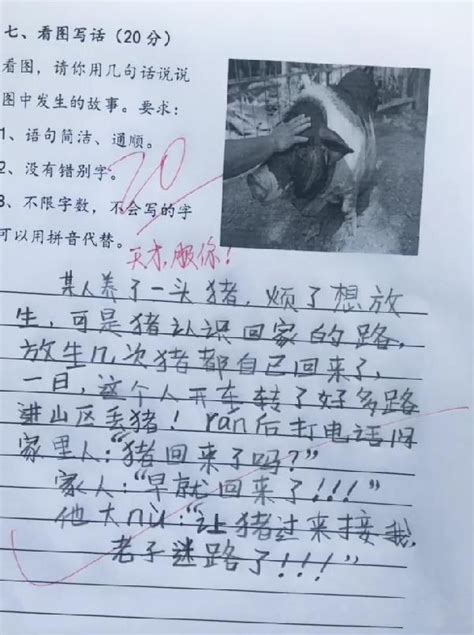 七、看图写话（20分）
看图，请你用几句话说说
图中发生的故事。要求：
1、语句简洁、通顺。
2、没有错别字。
3、不限字数，不会写的字
可以用拼音代替。
20
天才，服你！
某人养了一头猪，烦了想放
生，可是猪认识回家的路，
放生几次猪都自己回来了，
一日，这个人开车转了好多路
进山区丢猪！rán后打电话问
家里人：“猪回来了吗？”
家人：“早就回来了！！！”
他大nù：“让猪过来接我，
老子迷路了！！！”